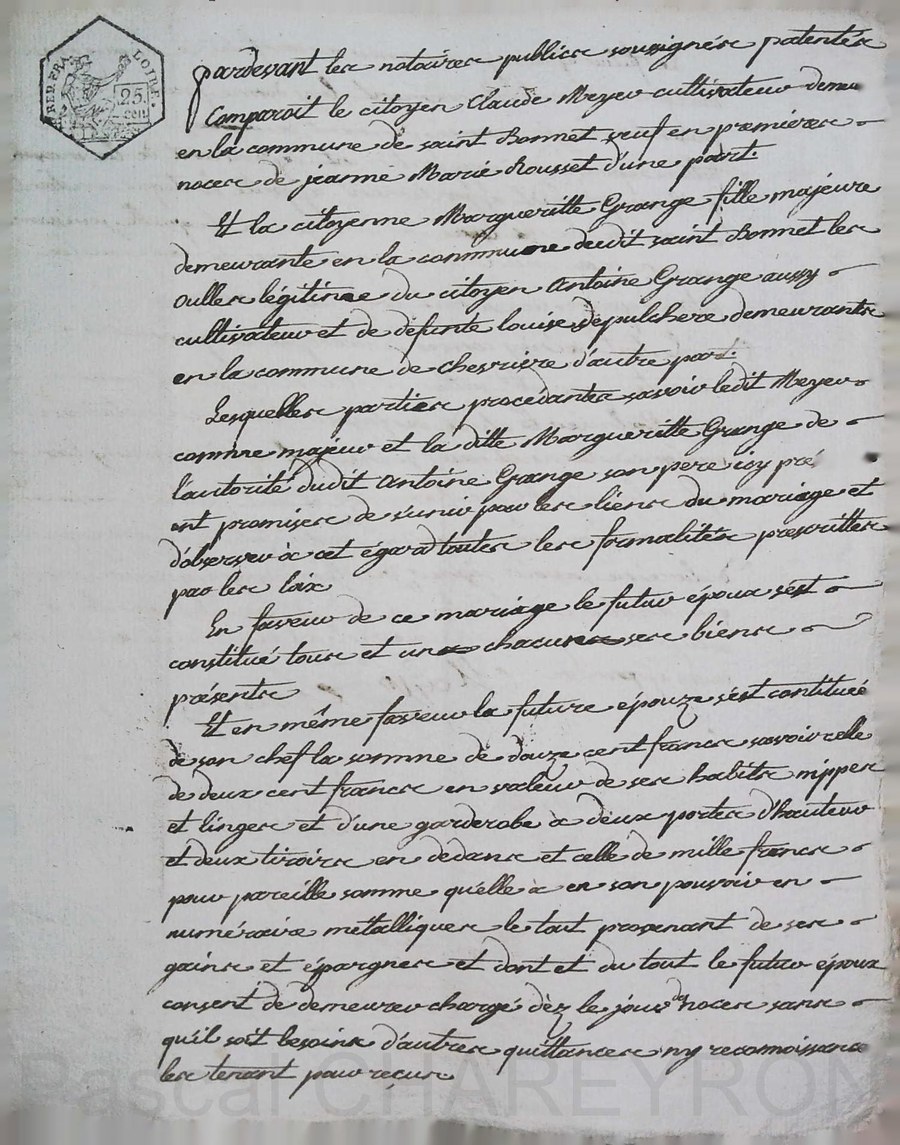 REP. FRA.
LOIRE.
25.
cen
pardevant les notaires publics soussignés patentés
Comparoit le citoyen Claude Meyer cultivateur demeu
en la commune de saint Bonnet veuf en premieres
noces de jeanne Marie Rousset d'une part.
Et la citoyenne Margueritte Grange fille majeure
demeurante en la commune dudit saint Bonnet les
oulles légitime du citoyen Antoine Grange aussy
cultivateur et de defunte louise sépulchere demeurants
en la commune de chevriere d'autre part.
Lesquelles parties procedantes savoir ledit Meyer
comme majeur et la ditte Margueritte Grange de
l'autorité dudit Antoine Grange son pere icy pré
ont promises de s'unir par les liens du mariage et
d'observer à cet égard toutes les formalités prescrittes
par les loix
En faveur de ce mariage le futur époux s'est
constitué tous et uns chacuns ses biens
présents
Et en même faveur la future épouze s'est contituée
de son chef la somme de douze cent francs savoir celle
de deux cent francs en valeur de ses habits nippes
et linges et d'une garderobe à deux portes d'hauteur
et deux tiroirs en dedans et celle de mille francs
pour pareille somme qu'elle à en son pouvoir en
numéraire métalliques le tout provenant de ses
gains et épargnes et dont et du tout le futur époux
consent de demeurer chargé dèz le jour des noces sans
qu'il soit besoins d'autres quittances ny reconnoissance
les tenant pour reçus
Pascal CHAREYRON